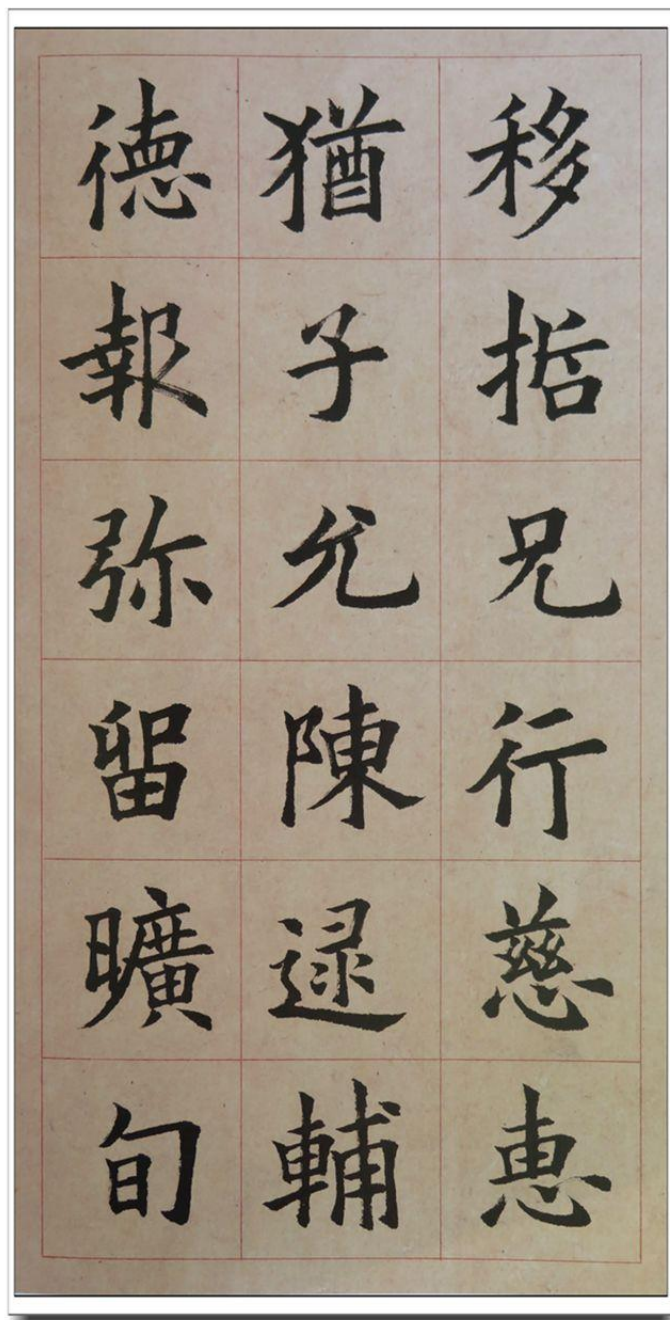 移哲兄行慈恵
猶子允陳逯輔
徳報弥留曠旬